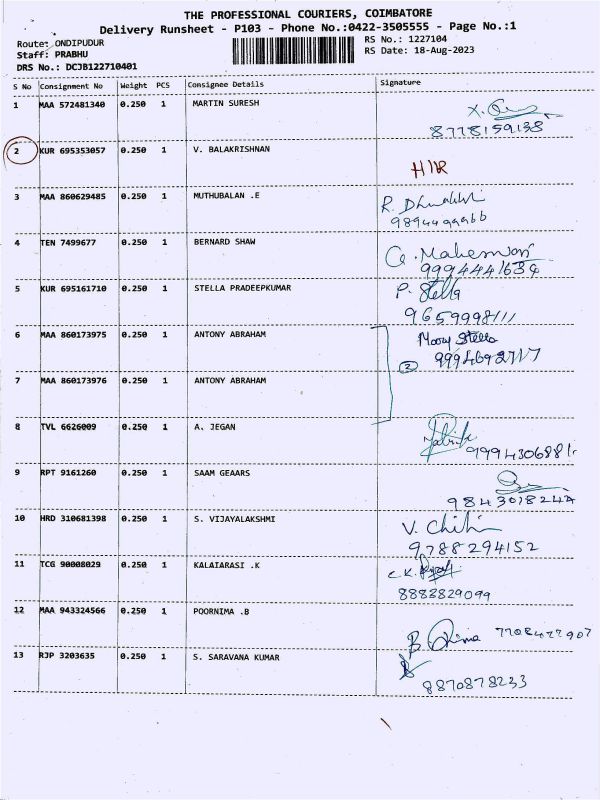 THE PROFESSIONAL COURIERS, COIMBATORE
Delivery Runsheet - P103 - Phone No.:0422-3505555 - Page No.:1
Route: ONDIPUDUR
RS No.: 1227104
Staff: PRABHU
RS Date: 18-Aug-2023
DRS No.: DCJB122710401
S No Consignment No Weight PCS Consignee Details Signature
1 MAA 572481340 0.250 1 MARTIN SURESH
8778159138
2 KUR 695353057 0.250 1 V. BALAKRISHNAN
3 MAA 860629485 0.250 1 MUTHUBALAN .E
9894499966
4 TEN 7499677 0.250 1 BERNARD SHAW
G. Maheswari
9994441634
5 KUR 695161710 0.250 1 STELLA PRADEEPKUMAR P. Stella
9659998111
6 MAA 860173975 0.250 1 ANTONY ABRAHAM Mary Stella
2 9994692717
7 MAA 860173976 0.250 1 ANTONY ABRAHAM
8 TVL 6626009 0.250 1 A. JEGAN
9 RPT 9161260 0.250 1 SAAM GEAARS
10 HRD 310681398 0.250 1 S. VIJAYALAKSHMI
9788294152
11 TCG 90008029 0.250 1 KALAIARASI .K
8883829099
12 MAA 943324566 0.250 1 POORNIMA .B
7708477907
13 RJP 3203635 0.250 1 S. SARAVANA KUMAR
8870878233